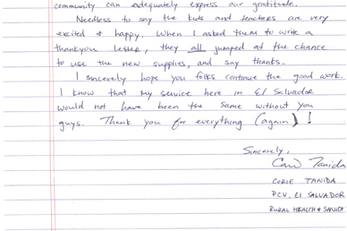 community can adequately express our gratitude.
Needless to say the kids and teachers are very
excited & happy. When I asked them to write a
thankyou letter, they all jumped at the chance
to use the new supplies, and say thanks.
I sincerely hope you folks continue the good work.
I know that my service here in El Salvador
would not have been the same without you
guys. Thank you for everything (again)!
Sincerely,
Tanida
CORIE TANIDA
PCV, EL SALVADOR
RURAL HEALTH &